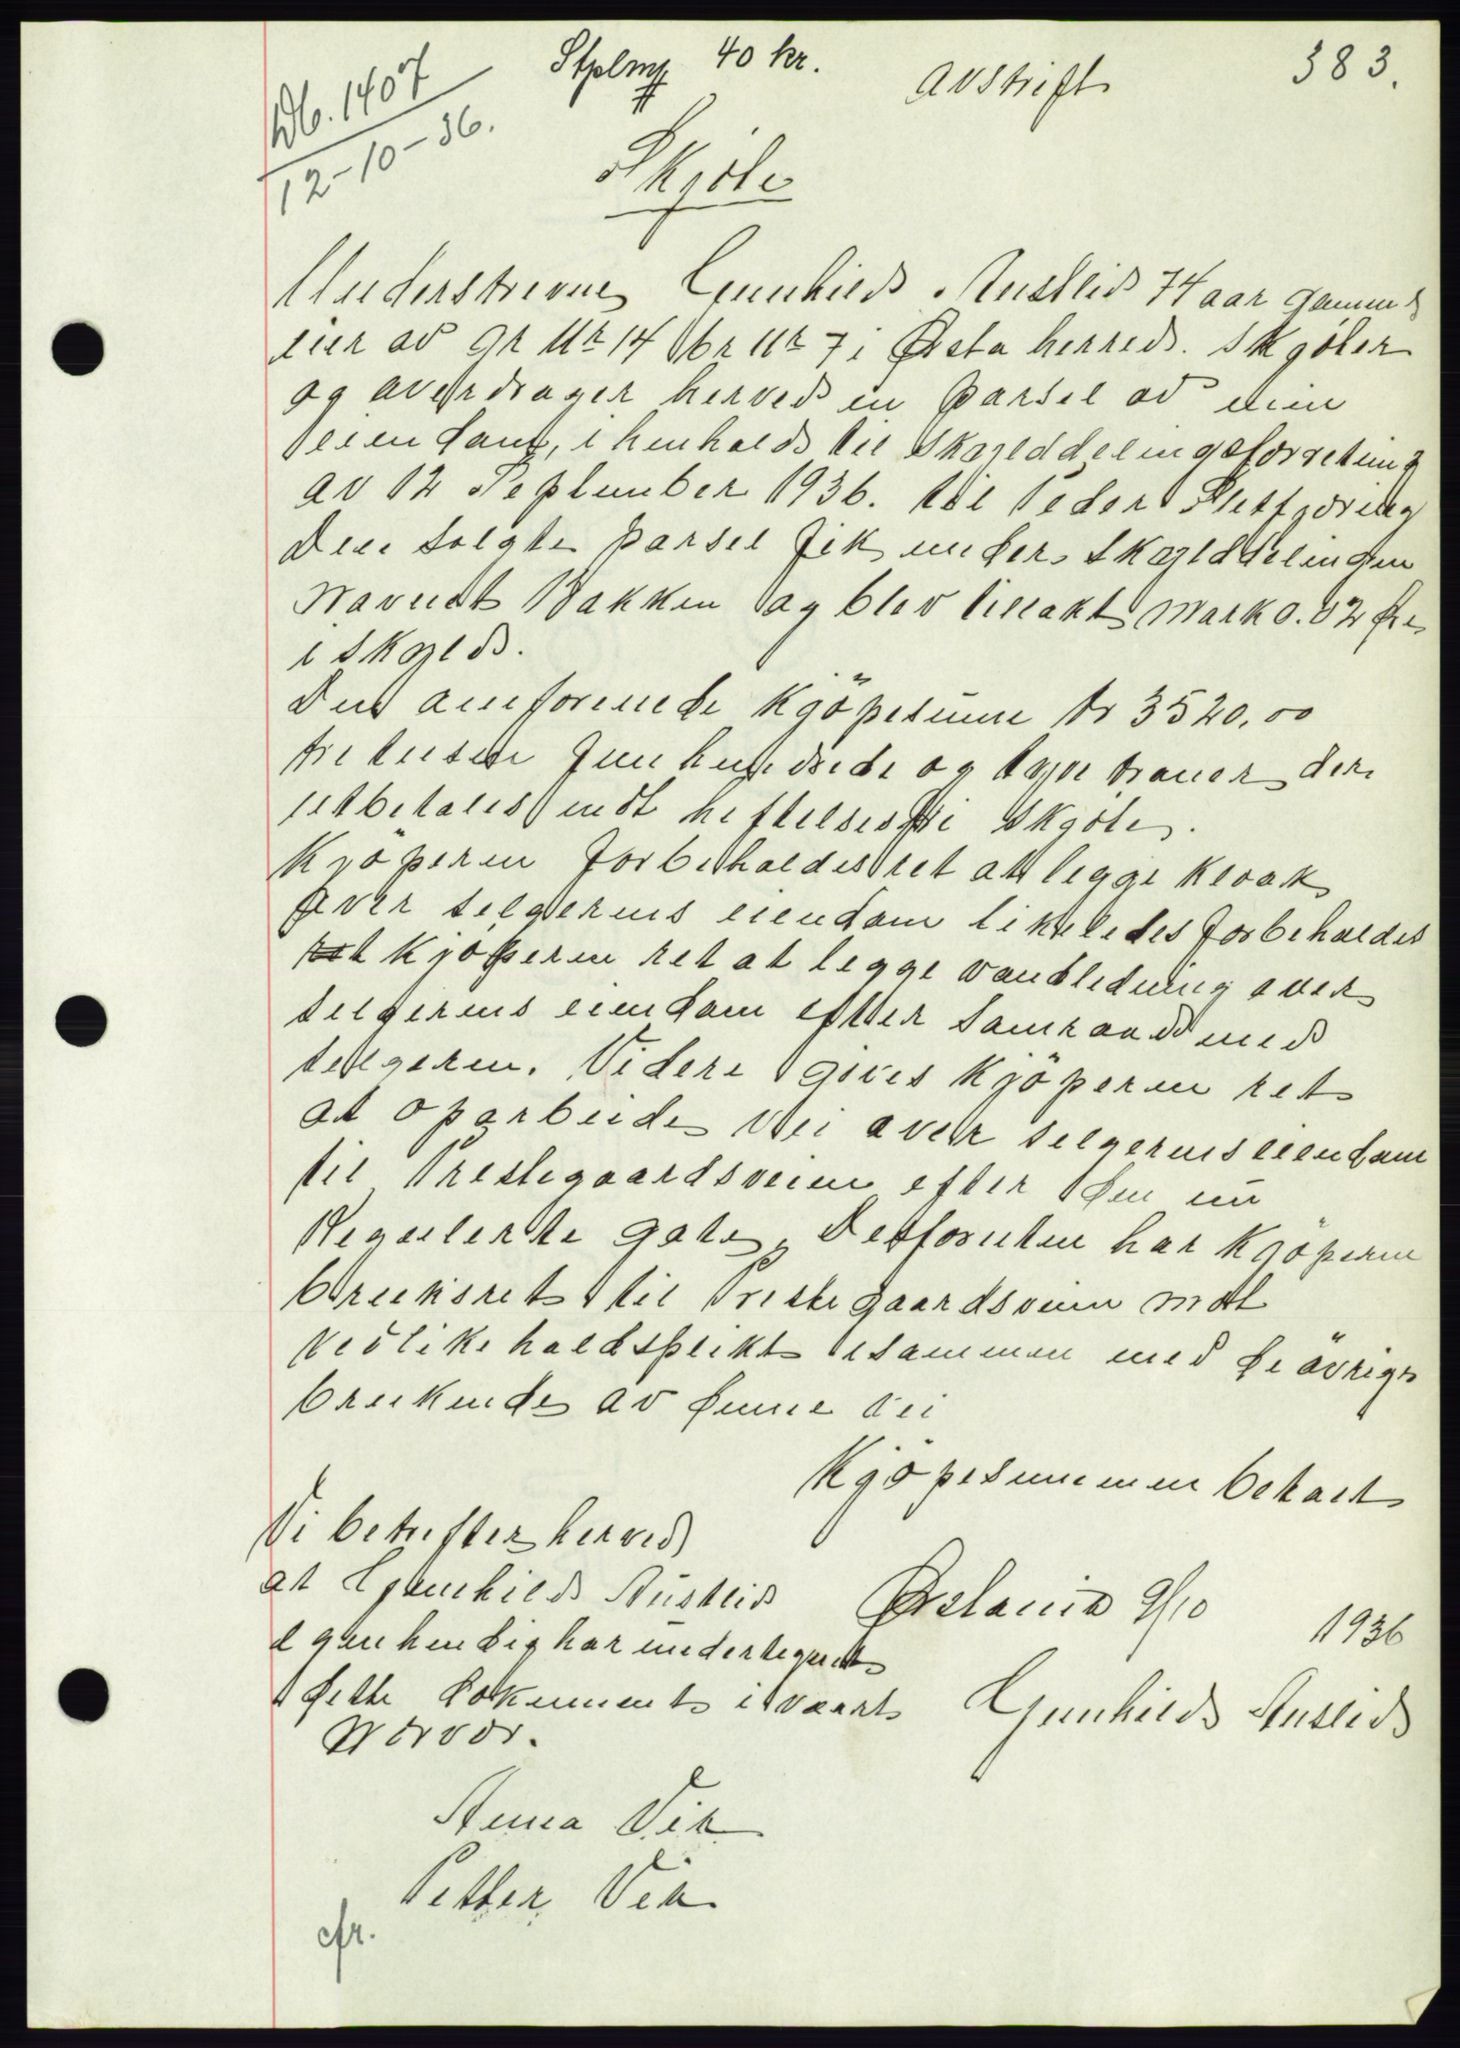 383.
Stplmrk 40 kr. avskrift
Db. 1407
12-10-36.
Skjöte
Underskrevne Gunhild Ausleid 74 aar gammel
eier av gr nr 14 br nr 7 i Ørsta herred. skjöter
og averdrager herved en parsel av min
eiendom, i henhold til skylddelingsforretning
av 12 September 1936. til Peder Sletfjering
Den solgte parsel fik under skylddelingen
navnet Bakken og blev tillakt mark 0.02 øre
i skyld.
Den omforenede kjöpesum kr 3520,00
tre tusen fem hundrede og tyve kroner der
utbetales mot heftelsesfri skjöte.
Kjöperen forbeholdes ret at legge kloak
over selgerens eiendom likeledes forbeholdes
kjöperen ret at legge vandledning over
selgerens eiendom efter samraad med
selgeren. Videre gives kjöperen ret
at oparbeide vei over selgerens eiendom
til Prestegaardsveien efter den nu
Regulerte gate, Desforuten har kjöperen
bruksret til Prestegaardsveien mot
vedlikeholdsplikt sammen med de övrige
brukende av denne vei
Kjöpesummen betalt
Vi bekrefter herved
at Gunhild Ausleid
egenhendig har undertegnet
dette dokument i vaart
nervær.
Ørstavik 9/10 1936
Gunhild Ausleid
Anna Vik
Petter Vik
cfr.